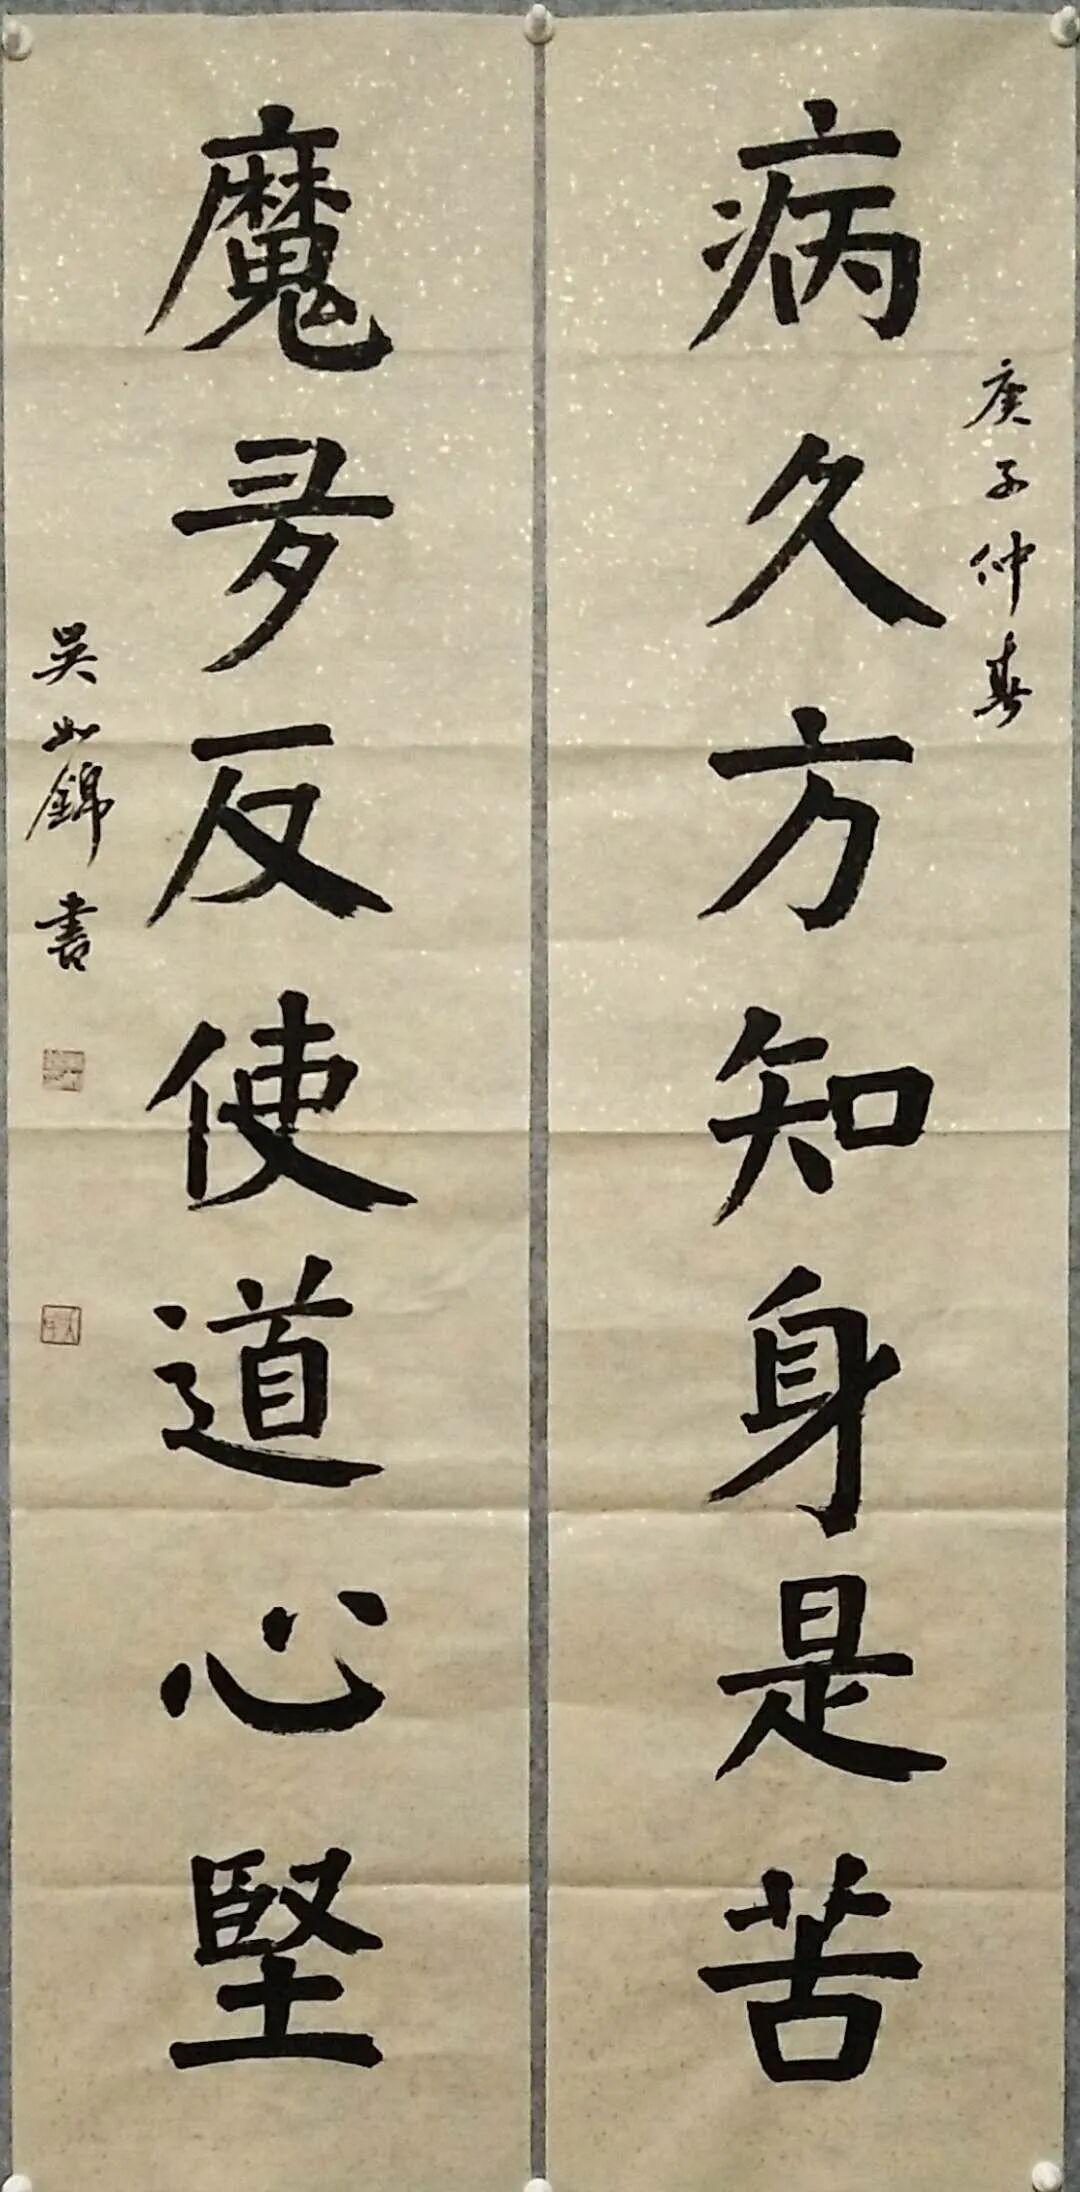 病久方知身是苦
庚子仲春
魔多反使道心堅
吴如錦書